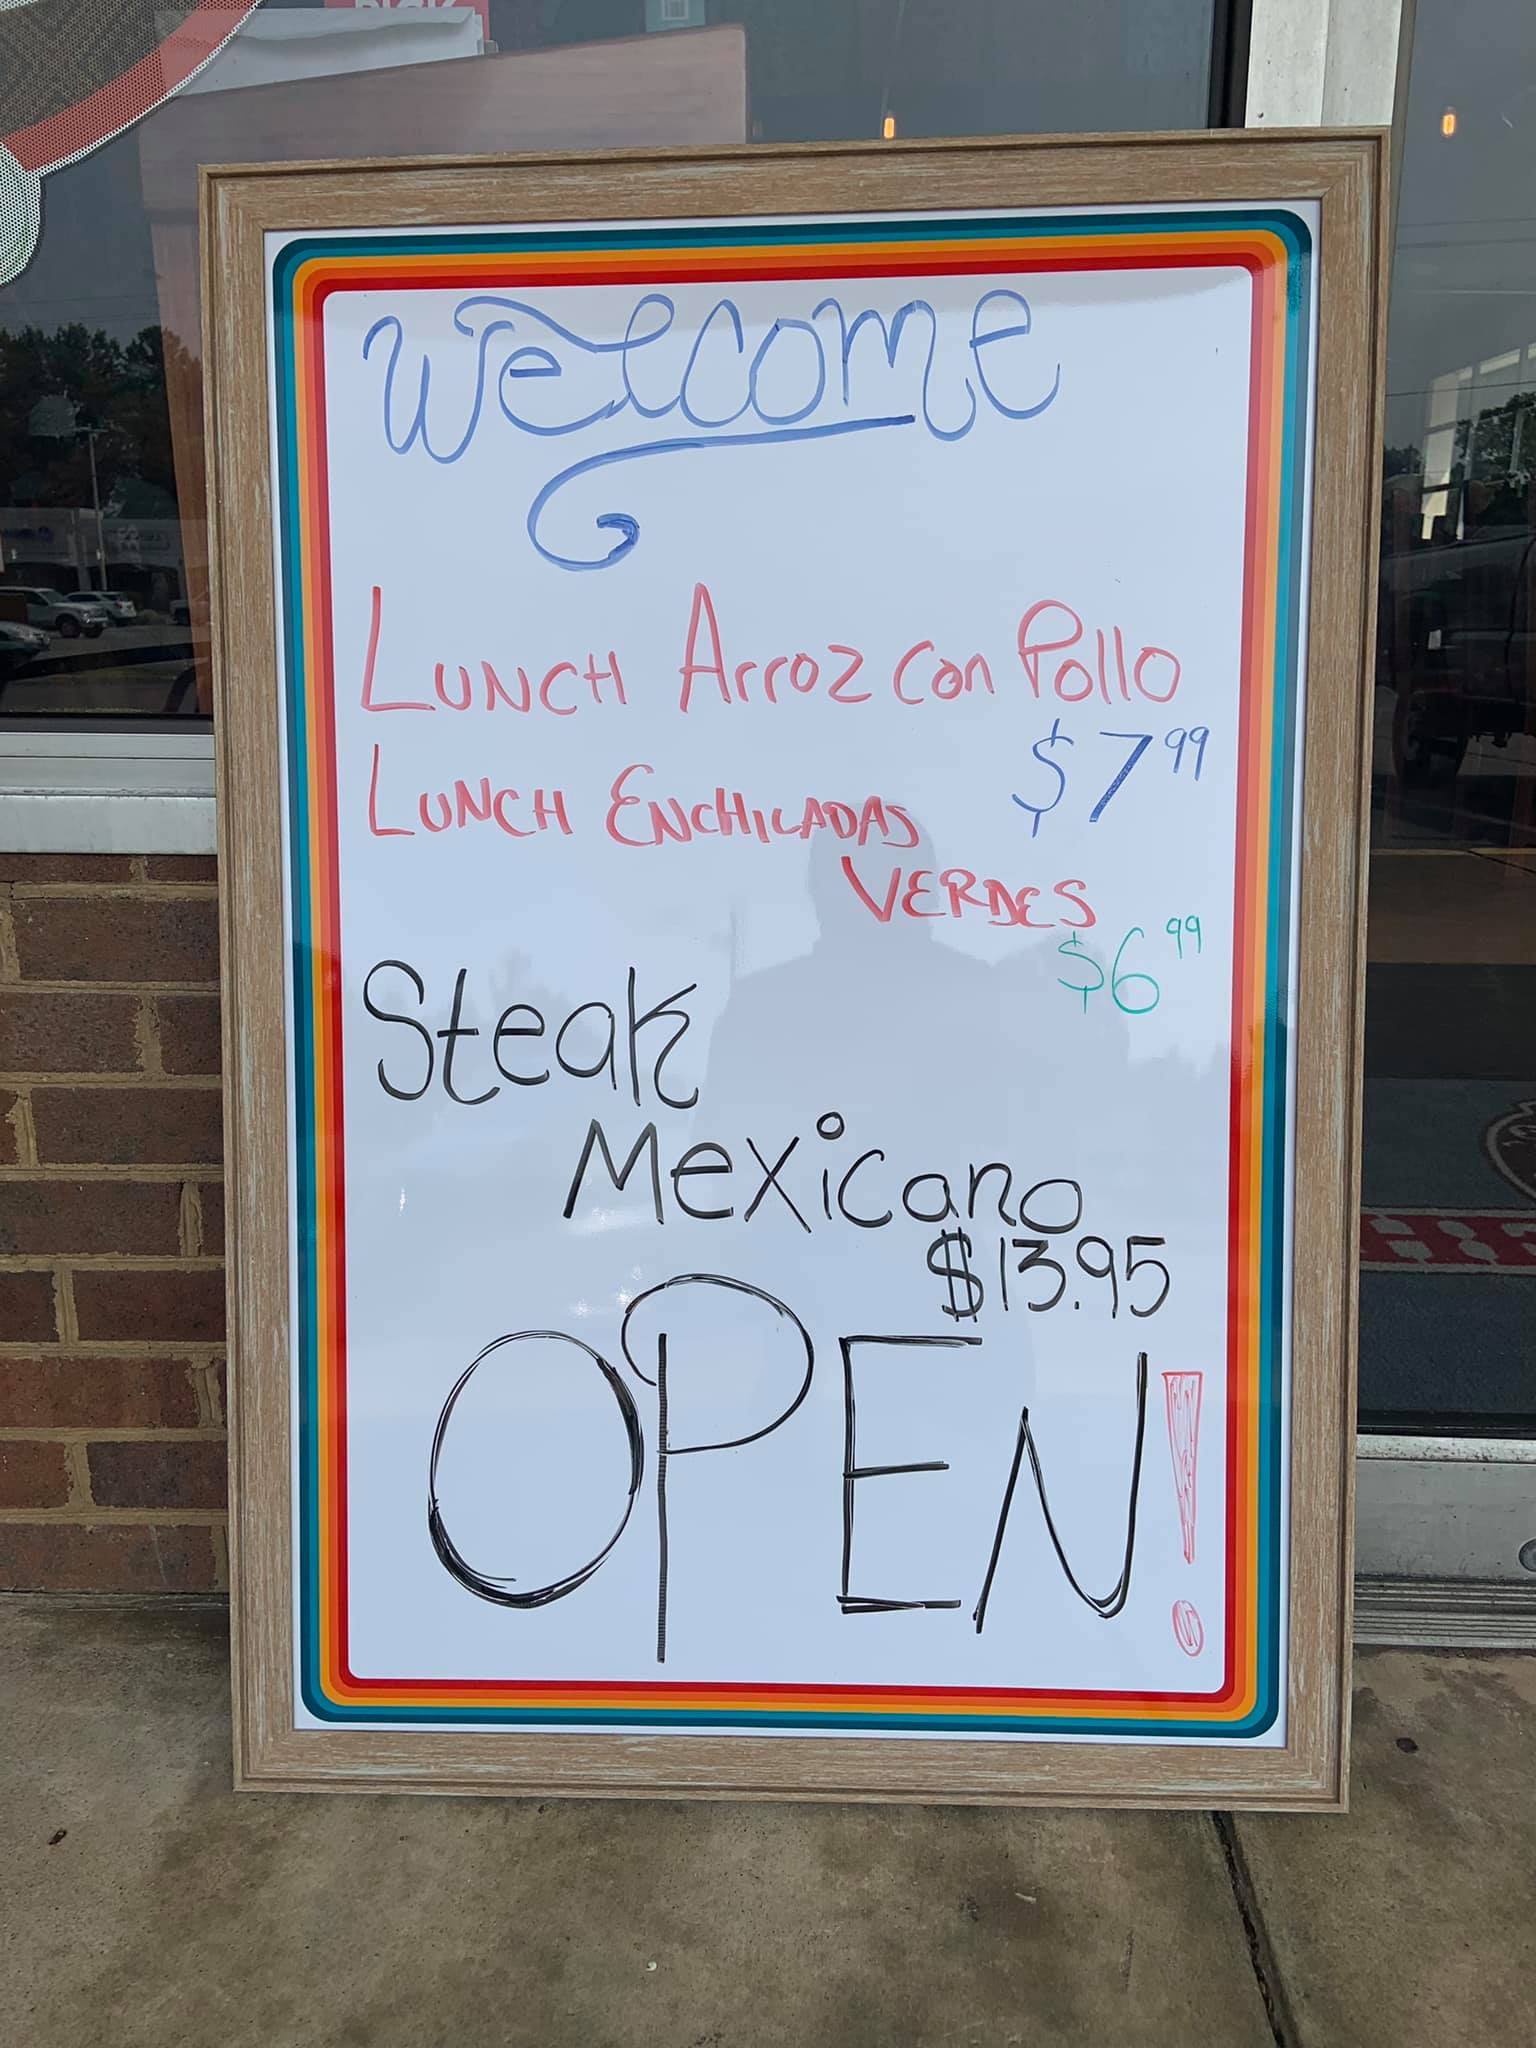 Welcome
LUNCH Arroz con Pollo
$7 99
LUNCH ENCHILADAS
VERDES
$6 99
Steak
Mexicano
$13.95
OPEN!